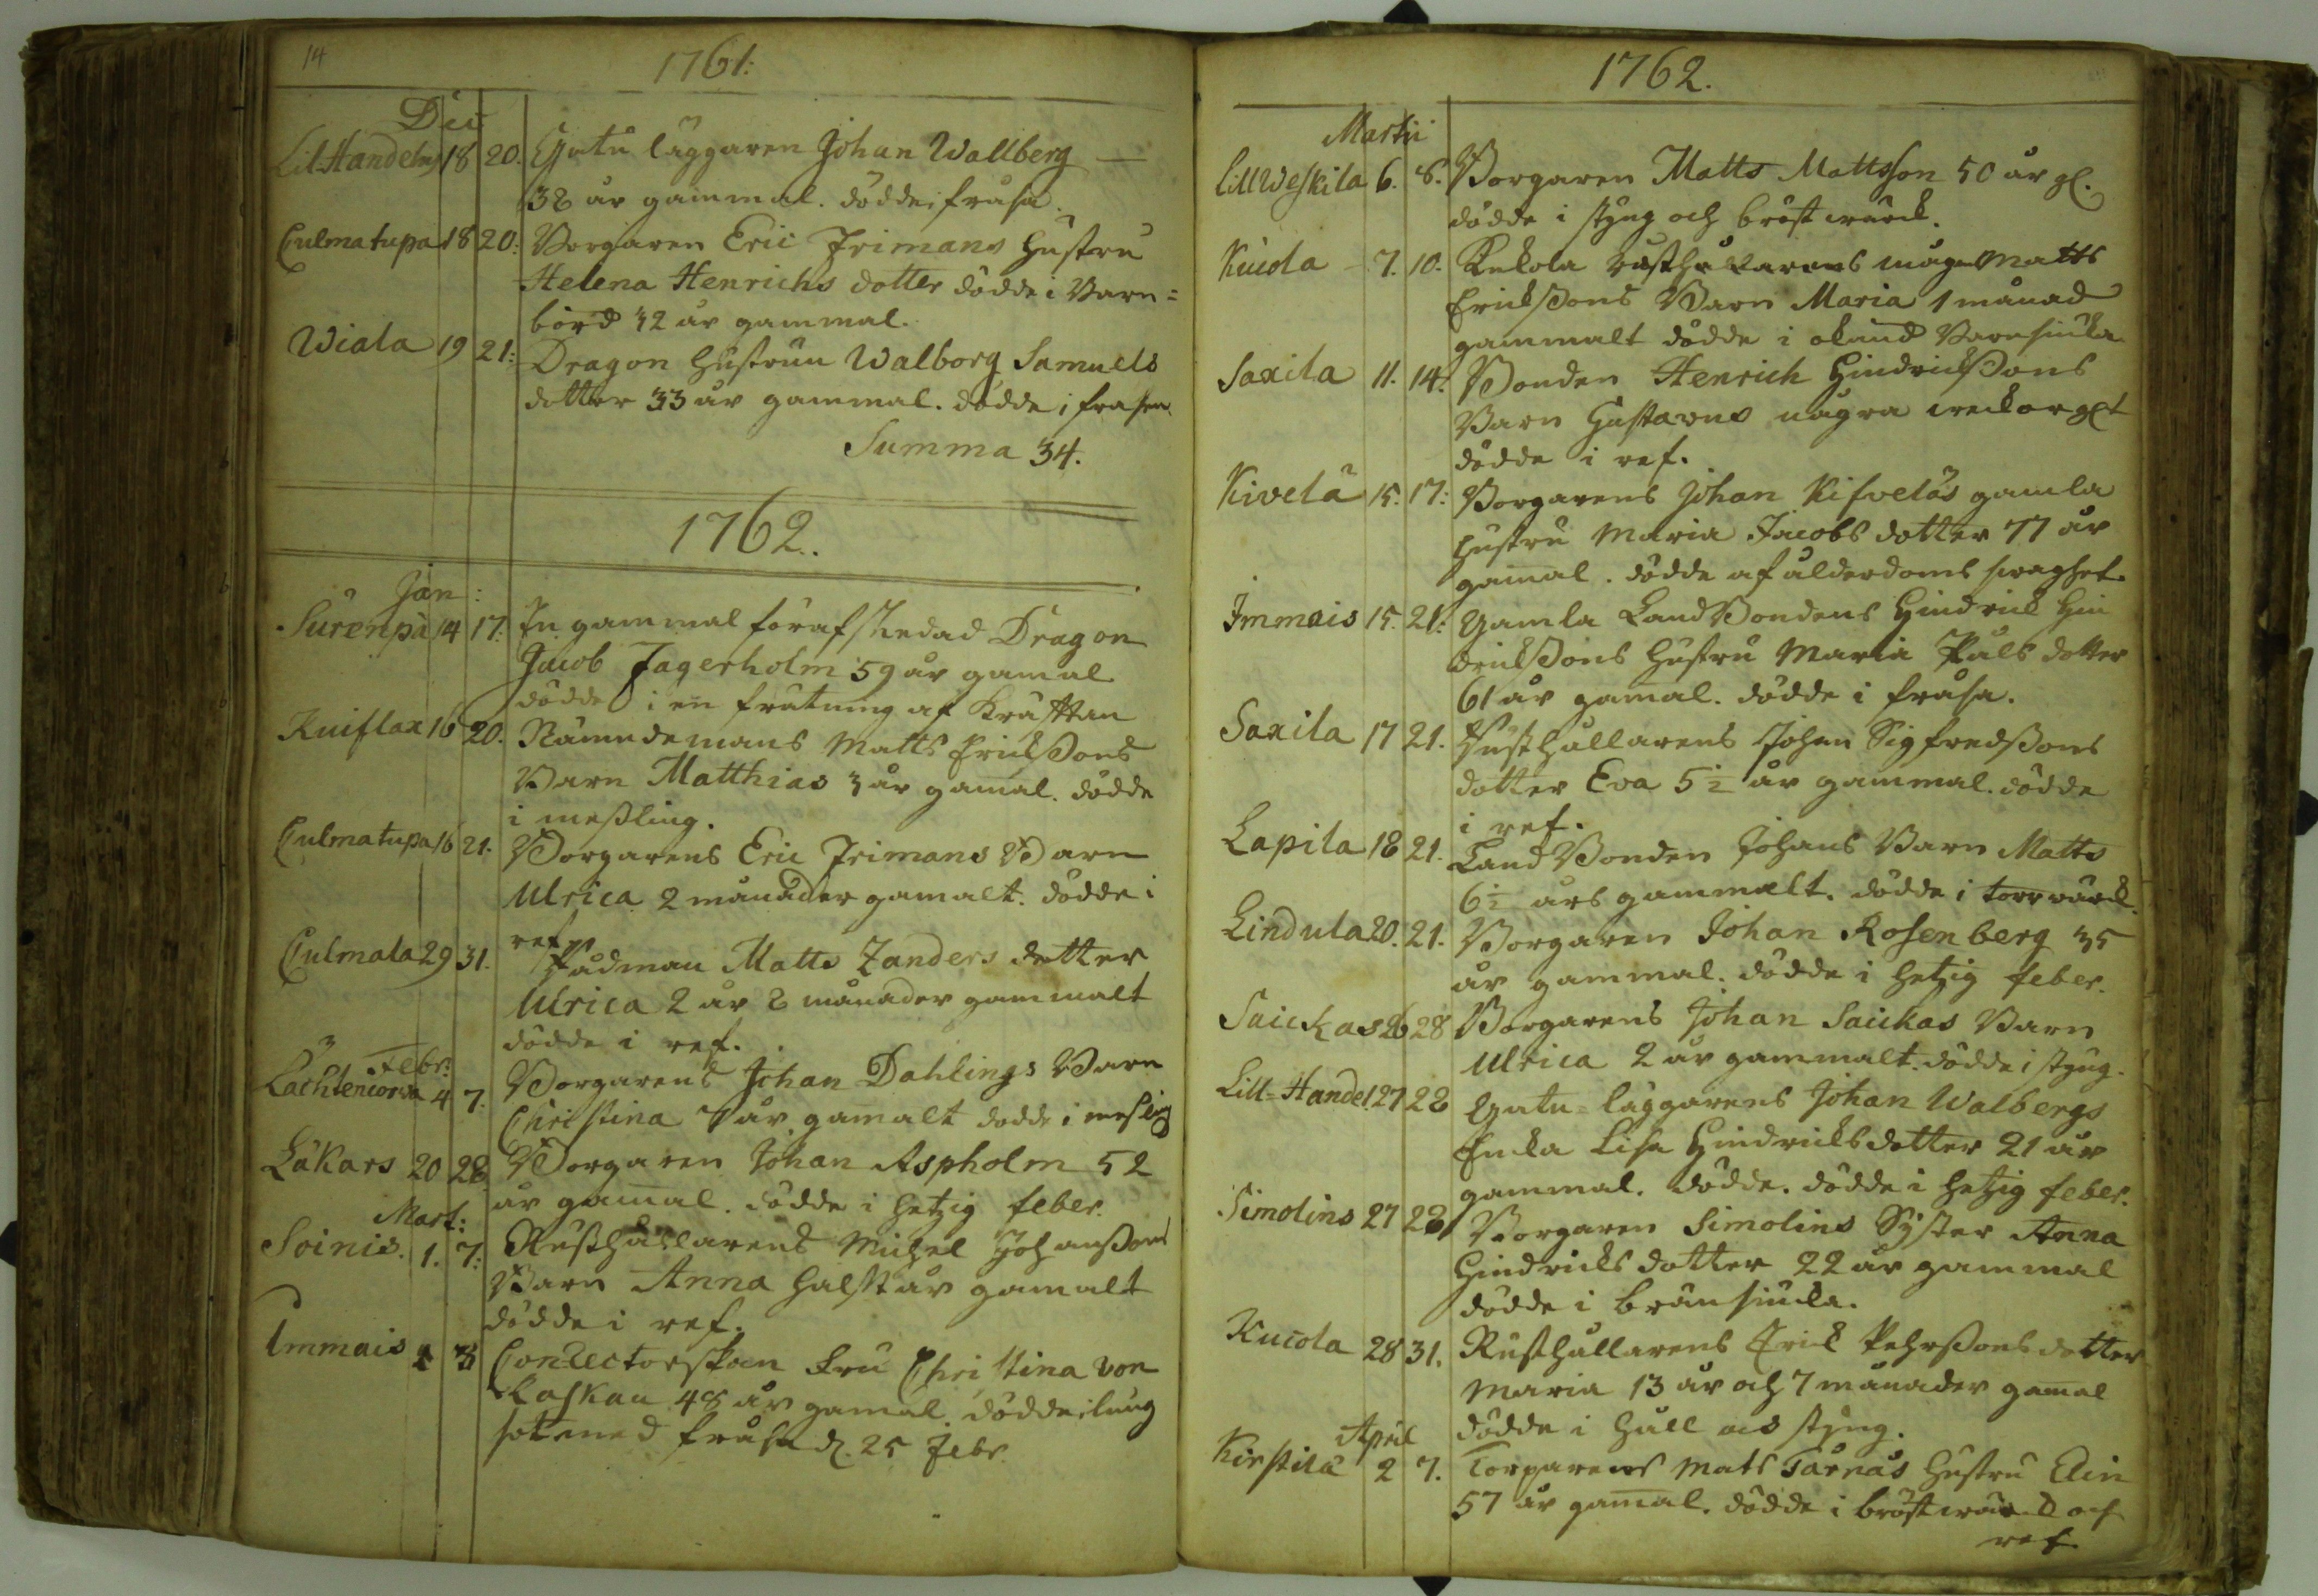 14
1761:
Dec
Lil-Handelns 18 20. Gatu läggaren Johan Wallberg —
38 år gammal. dödde i fråsa.
Culmatupa 18 20: Borgaren Eric Frimans Hustru
Helena Henrichs dotter dödde i Barn=
börd 42 år gammal.
Wiala 19 21: Dragon Hustrun Walborg Samuels
dotter 33 år gammal. dödde i frasen.
Summa 34.
1762.
Jan:
Surenpä 14 17: En gammal förafskedad Dragon
Jacob Fagerholm 59 år gamal
dödde i en frätning af Kräfttan
Kuiflax 16 20. Nämndemans Matts Erickßons
Barn Matthias 3 år gamal. dödde
i meßling.
Culmatupa 16 21. Borgarens Eric Frimans Barn
Ulrica 2 månader gamalt. dödde i
ref.
Culmala 29 31. Rådman Matts Zanders dotter
Ulrica 2 år 8 månader gammalt
dödde i ref.
Febr:
Lächtencorva 4 7. Borgarens Johan Dahlings Barn
Christina 7 år gamalt dödde i mesling
Läkars 20 28. Borgaren Johan Aspholm 52
år gamal. dödde i hetzig feber.
Mart:
Soinis. 1. 7: Rusthållarens Michel Johanßons
Barn Anna halft år gamalt
dödde i ref.
Immais Conrectorskan Fru Christina von
48 år gamal dödde i lung
sot med fråssa d. 25 Febr.
1762.
Martii
Lillweskila 6. 8. Borgaren Matts Mattsson 50 år gl.
dödde i styng och bröst wärck.
Kuiola 7. 10. Kekola rusthållarens måg Matts
Erickßons Barn Maria 1 månad
gammalt dödde i okänd Barnsiuka
Saxila 11. 14. Bonden Henrich Hindrickßons
Barn Gustavus några weckor glt
dödde i ref.
Kivelä 15. 17: Borgarens Johan Kifveläs gamla
hustru Maria Jacobs dotter 77 år
gamal. dödde af ålderdoms swaghet.
Immais 15. 21: Gamla Land Bondens Hindrick Hin
drickßons Hustru Maria Påls dotter
61 år gamal. dödde i fråsa.
Saxila 17 21. Rusthållarens Johan Sigfredßons
dotter Eva 5 1/2 år gammal. dödde
i ref.
Lapila 18 21. Land Bonden Johans Barn Matts
6 1/2 års gammalt. dödde i torrwärck.
Lindula 20. 21. Borgaren Johan Rosenberg 35
år gammal. dödde i hetzig feber.
Saickas 26 28 Borgarens Johan Saickas Barn
Ulrica 2 år gammalt. dödde i styng.
Lill=Handel 27 28 Gatu=läggarens Johan Walbergs
Enka Lisa Hindricksdotter 21 år
gammal. dödde. dödde i hetzig feber.
Simolins 27 28 Borgaren Simolins Syster Anna
Hindricks dotter 22 år gammal
dödde i brännsiucka.
Kuiola 28 31. Rusthållarens Erick Pehrßons dotter
Maria 13 år och 7 månader gamal
dödde i håll och styng.
April
Kirstilä 2 7. Torparens Mats Tarnas Hustru Elin
57 år gamal. dödde i bröstwärck och
ref